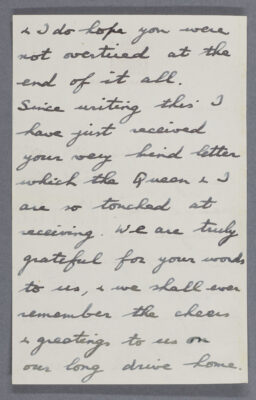 & I do hope you were
not overtired at the
end of it all.
Since writing this I
have just received
your very kind letter
which the Queen & I
are so touched at
receiving. We are truly
grateful for your words
to us, & we shall ever
remember the cheers
& greetings to us on
our long drive home.